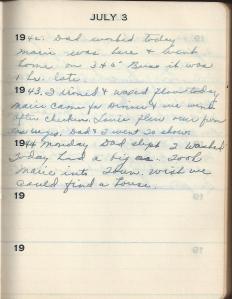 JULY 3
1942. Dad worked today
Marie was here & went
home on 3 45 Buss it was
1 hr. late
1943. I rined & waxed floor today
Marie came for Dinner & we went
after chickens. Louie flew over from
Dad & I went to show.
1944 Monday Dad slept I washed
Today had a big as. Took
Marie into Town. Wish we
could find a house.
19
19